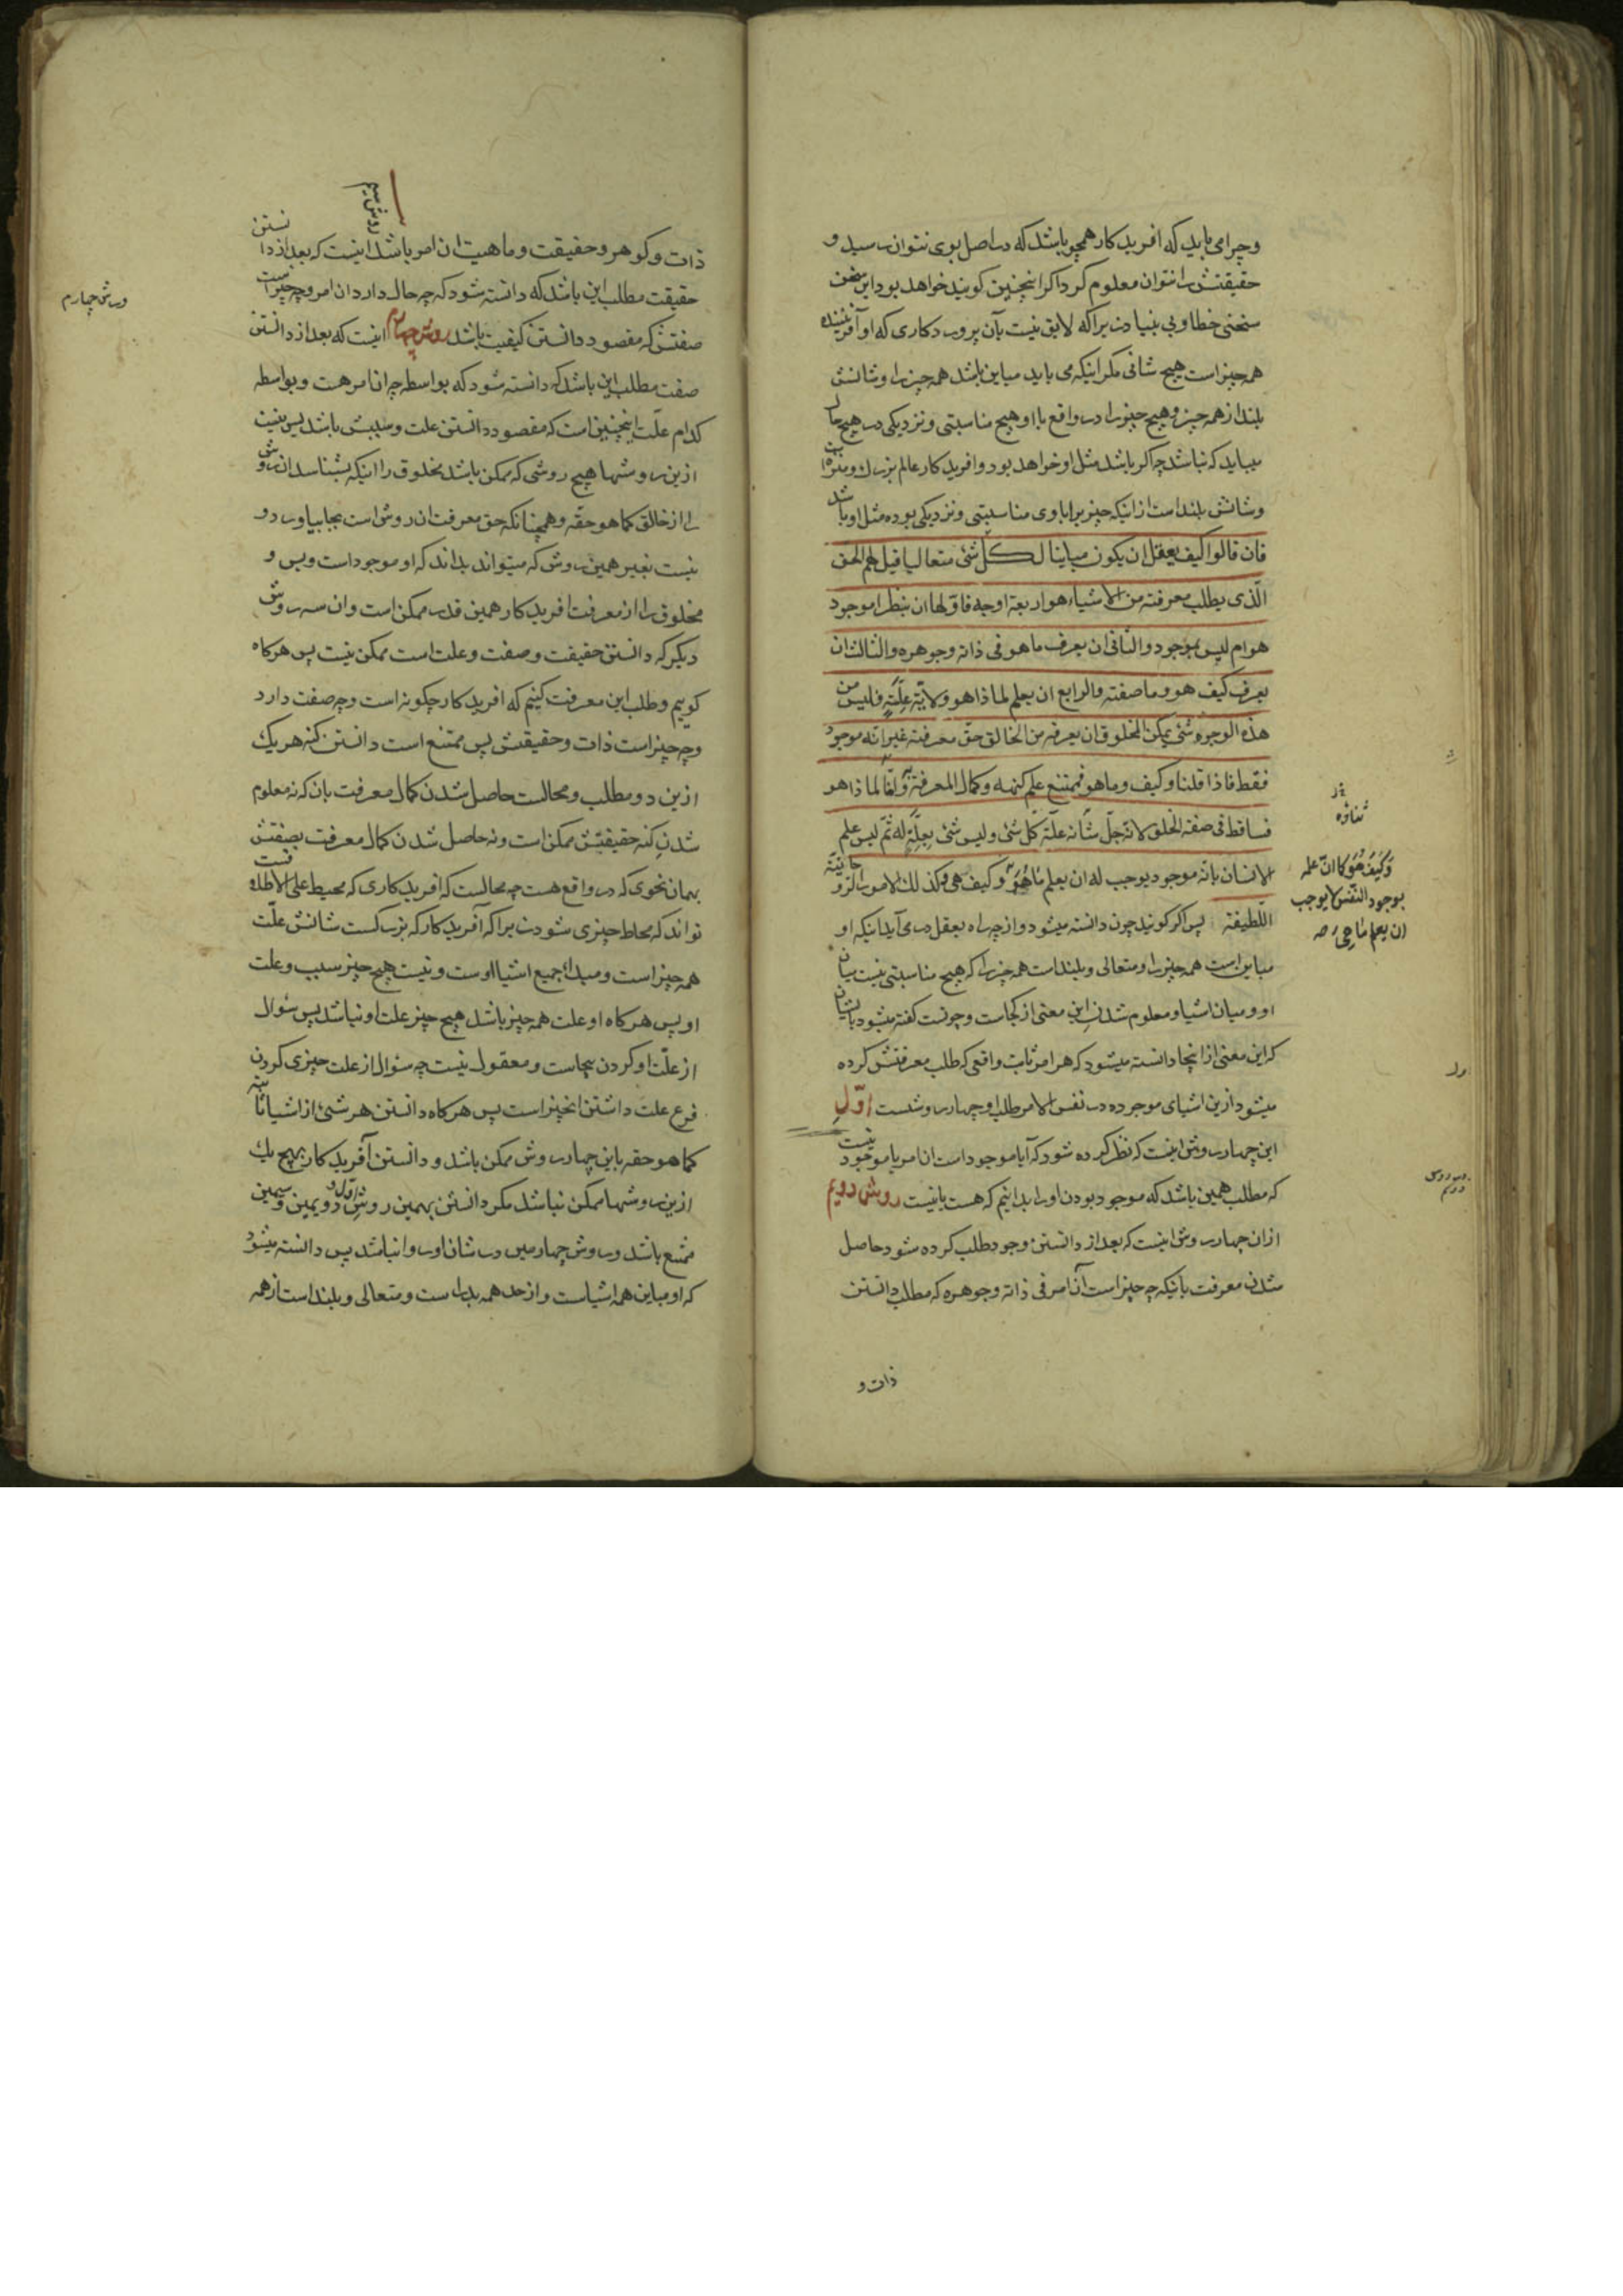 وچرا می باید که افریدکار همچو باشد که در اصل بوی نتوان رسید و
حقیقتش را نتوان معلوم کرد اکر اینچنین کویند خواهد بود این سخن
سخنی خطا و بی بنیاد زیرا که لایق نیست بآن پروردکاری که او آفریننده
همه چیز است هیچ شانی مکر اینکه می باید مباین باشد همه چیز را و شانش
بلند از همه چیز و هیچ چیز را در واقع با او هیچ مناسبتی و نزدیکی در هیچ حال
میباید که نباشد چه اکر باشد مثل او خواهد بود و افریدکار عالم بزرك و منزه است
و شانش بلند است از اینکه چیزیرا باوی مناسبتی و نزدیکی بوده مثل او باشد
فان قالوا کیف یعقل ان یکون مباینا لکل شئ متعالیا قیل لهم الحق
الذی یطلب معرفته من الاشیاء هو اربعة اوجه فاولها ان ینظر اموجود
هو ام لیس بموجود والثانی ان یعرف ما هو فی ذاته وجوهره والثالث ان
یعرف کیف هو وما صفته والرابع ان یعلم لماذا هو ولایة علّة فلیس من
هذه الوجوه شئ یمکن المخلوق ان یعرفه من الخالق حق معرفته غیر انه موجود
فقط فاذا قلنا وکیف وما هو فممتنع علم کنهه وکمال المعرفة به وامّا لماذا هو
فساقط فی صفة الخلق لانه جلّ شانه علّة کلّ شئ ولیس شئ بعلّة له ثمّ لیس علم
الانسان بانه موجود یوجب له ان یعلم ما هو وکیف هی وکذلك الامور الروحانیة
اللطیفة پس اکر کویند چون دانسته میشود و از چه راه بعقل در می آید اینکه او
مباین است همه چیز را و متعالی و بلند است همه چیز را که هیچ مناسبتی نیست میان
او و میان اشیا و معلوم شدن این معنی از کجاست و چونست کفته میشود بایشان
که این معنی از اینجا دانسته میشود که هر امر ثابت واقعی که طلب معرفتش کرده
میشود ازین اشیای موجوده در نفس الامر طلب او چهار روشست اوّل
این چهار روش اینست که نظر کرده شود که آیا موجود است ان امر یا موجود نیست
که مطلب همین باشد که موجود بودن او را بدانیم که هست یا نیست روش دویم
ازان چهار روش اینست که بعد از دانستن وجود طلب کرده شود حاصل
شدن معرفت بانیکه چه چیز است آن امر فی ذاته وجوهره که مطلب دانستن
ذات و
وکیف هو کما ان علمه
بوجود النفس لا یوجب
ان یعلم ما هی
روش سیم
ذات و کوهر و حقیقت و ماهیت ان امر باشد اینست که بعد از دانستن
حقیقت مطلب این باشد که دانسته شود که چه حال دارد ان امر و چه چیز است
صفتش که مقصود دانستن کیفیت باشد روش چهارم اینست که بعد از دانستن
صفت مطلب این باشد که دانسته شود که بواسطه چه ان امر هست و بواسطه
کدام علّت اینچنین است که مقصود دانستن علت و سببش باشد پس نیست
ازین روشها هیچ روشی که ممکن باشد مخلوق را اینکه بشناسد ان روش
را از خالق کما هو حقّه و همچنانکه حق معرفت ان روش است بجا بیاورد و
نیست بغیر همین روش که میتواند بداند که او موجود است و بس و
مخلوق را از معرفت افریدکار همین قدر ممکن است و ان سه روش
دیکر که دانستن حقیقت و صفت و علت است ممکن نیست پس هرکاه
کوییم و طلب این معرفت کنیم که افریدکار چکونه است و چه صفت دارد
و چه چیز است ذات و حقیقتش پس ممتنع است دانستن کنه هریك
ازین دو مطلب و محالست حاصل شدن کمال معرفت بان که نه معلوم
شدن کنه حقیقتش ممکن است و نه حاصل شدن کمال معرفت بصفتش
بهمان نحوی که در واقع هست چه محالست که افریدکاری که محیط علی الاطلاقست
تواند که محاط چیزی شود زیرا که آفریدکار که بزرکست شانش علّت
همه چیز است و مبداء جمیع اشیا اوست و نیست هیچ چیز سبب و علت
او پس هرکاه او علت همه چیز باشد هیچ چیز علت او نباشد پس سؤال
از علّت او کردن بیجاست و معقول نیست چه سؤال از علت چیزی کردن
فرع علت داشتن انچیز است پس هرکاه دانستن هر شئ از اشیا ثابته
کما هو حقه باین چهار روش ممکن باشد و دانستن آفریدکار بهیچ یك
ازین روشها ممکن نباشد مکر دانستن بهمین روش اوّل و دویمین و سیمین
ممتنع باشد و روش چهارمین در شان او روا نباشد پس دانسته میشود
که او مباین همه اشیاست و از حد همه بدر است و متعالی و بلند است از همه
روش چهارم